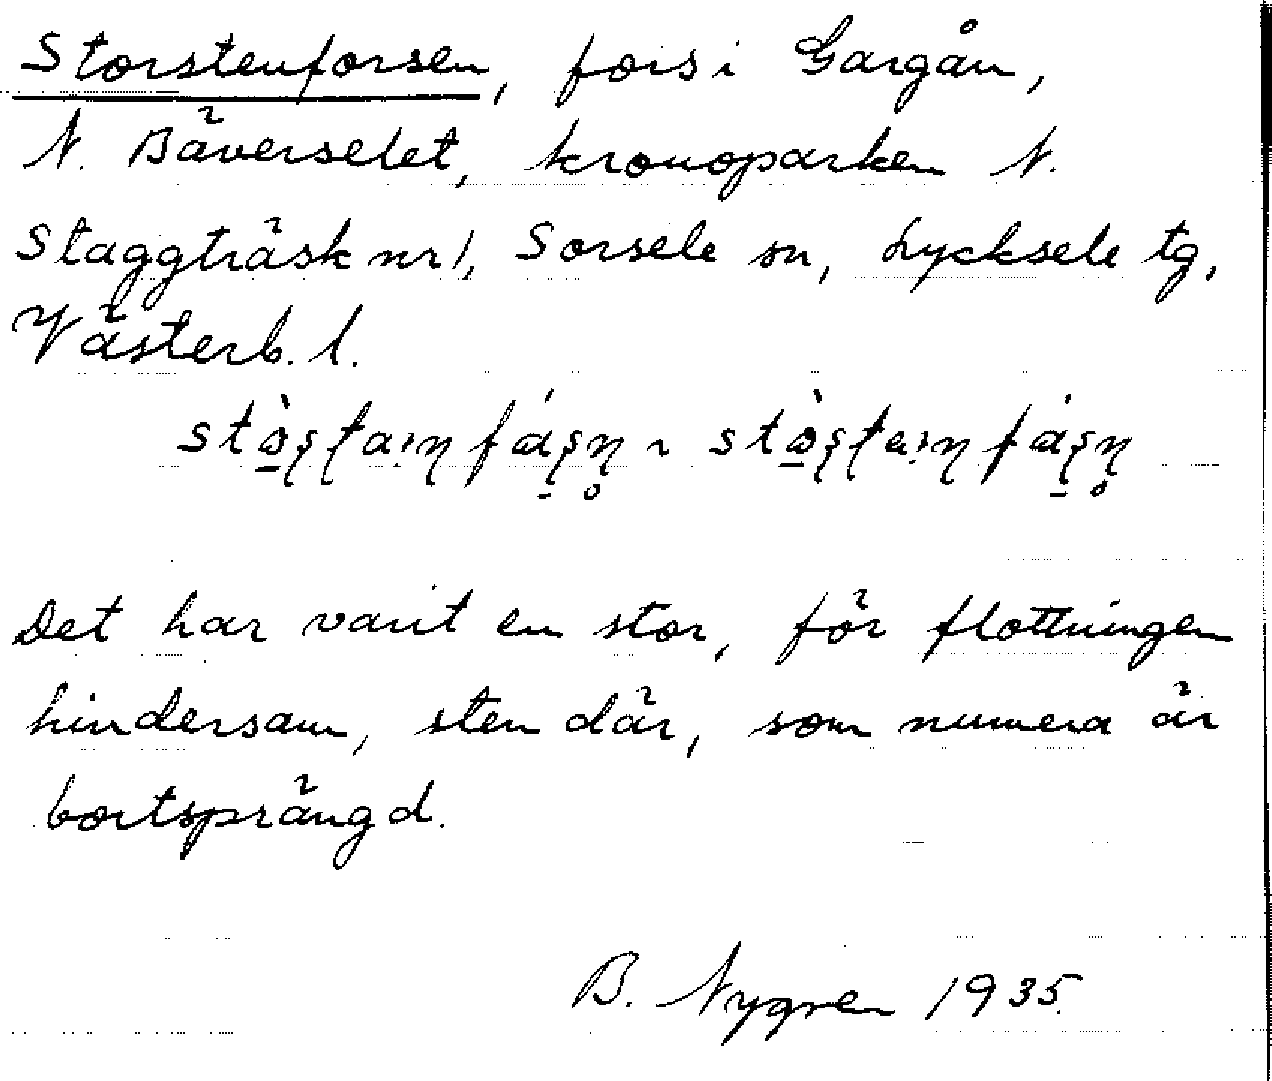 Storstenforsen, fors i Gargån,
N. Bäverselet, kronoparken N.
Staggträsk nr 1, Sorsele sn, Lycksele tg,
Västerb. l.
Det har varit en stor, för flottningen
hindersam, sten där, som numera är
bortsprängd.
B. Nygren 1935.